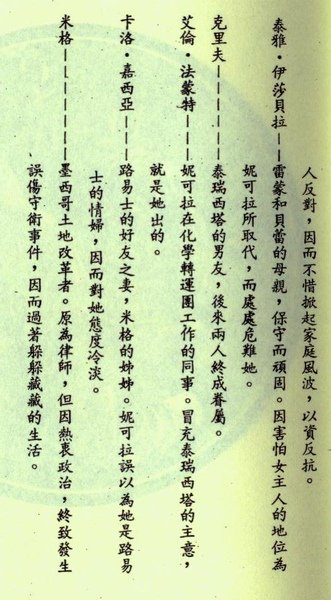 人反對，因而不惜掀起家庭風波，以資反抗。
泰雅·伊莎貝拉——雷蒙和貝蕾的母親，保守而頑固。因害怕女主人的地位為
妮可拉所取代，而處處危難她。
克里夫——————泰瑞西塔的男友，後來兩人終成眷屬。
艾倫·法蒙特———妮可拉在化學轉運團工作的同事。冒充泰瑞西塔的主意，
就是她出的。
卡洛·嘉西亞———路易士的好友之妻，米格的姊姊。妮可拉誤以為她是路易
士的情婦，因而對她態度冷淡。
米格———————墨西哥土地改革者。原為律師，但因熱衷政治，終致發生
誤傷守衛事件，因而過著躲躲藏藏的生活。